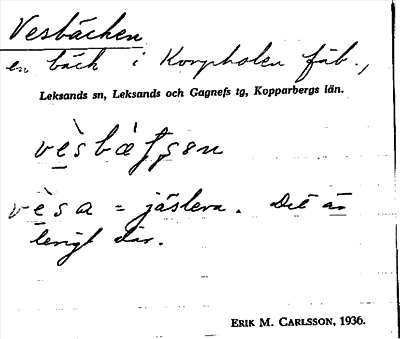 Vesbäcken
en bäck i Korpholen fäb.,
Leksands sn, Leksands och Gagnefs tg, Kopparbergs län.
vèsa = jäslera. Det är
lerigt där.
ERIK M. CARLSSON, 1936.